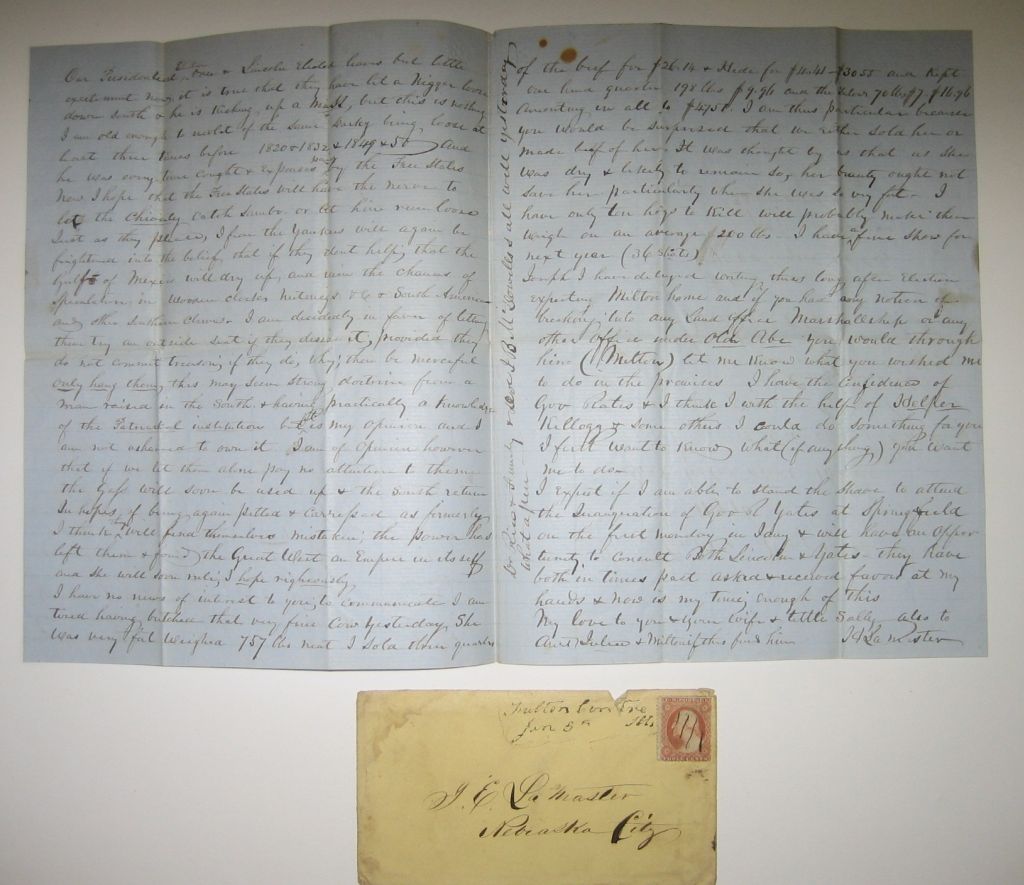 Our Presidential Election is over & Lincoln Elected hears but little
excitement now, it is true that they have let a Nigger loose
down South & he is kicking up a , but this is nothing
I am old enough to recolect of the same Darky being loose at
least three times before 1820 & 1832 & 1849 & 50 And
he was every time caught & Expenses paid by the Free States
Now I hope that the Free States will have the nerve to
let the Chivalry Catch Sambo, or let him run loose
Just as they please, I fear the Yankees will again be
frightened into the belief, that if they dont help, that the
Gulf of Mexico will dry up, and ruin the chances of
Speculation in Wooden clocks Nutmegs &C & South American
and other Southern climes. I am decidedly in favor of letting
them try an outside if they desire it, provided they
do not commit treason, if they do, why, then be merciful
only hang them, this may seem strong doctrine from a
man raised in the South & having practically a knowledge
of the Patriarchal institution but its my opinion and I
am not ashamed to own it I am of opinion however
that if we let them alone pay no attention to them
the Gass will soon be used up & the South return
In hopes, of being again petted & carressed as formerly
I think they will find themselves mistaken, the power has
left them & found the Great West an Empire in itself
and she will soon rule, I hope righteously
I have no news of interest to you, to communicate I am
tired having butchered that very fine Cow yesterday She
was very fat weighed 757 lbs neat I sold three quarters
Dr & Family & Sen J. B. McDowells all well yesterday
what a pen
of the beef for $26.14 & Hide for $4.41 - $30.55 and Kept
one hind quarter 198 lbs $9.96 and the tallow 70 lbs $7. $16.96
Amounting in all to $47.51. I am thus particular because
you would be surprised that we either sold her or
made beef of her. It was thought by us that as she
was dry & likely to remain so, her beauty ought not
save her particularly when she was so very fat. I
have only ten hogs to kill will probably make them
weigh on an average 200 lbs. I have a fine show for
next year (36 Shotes)
Joseph I have delayed writing thus long, after Election
expecting Milton home and if you have any notion of
breaking into any Land office Marshallship or any
other office under Olde Abe you would through
him (Milton) let me know what you wished me
to do in the premises I have the confidence of
Gov Yates & I think I with the help of
Kellogg & some others I could do something for you
I first want to know what (if any thing,) you want
me to do
I expect if I am able to stand the Shave to attend
the Inauguration of Gov R Yates at Springfield
on the first monday in Jany & will have an oppor
tunity to consult Both Lincoln & Yates they have
both in times past asked & received favors at my
hands & now is my time, enough of this
My love to you & your Wife & little Sally also to
Aunt Julia & Milton if this find him
LaMaster
Fulton Centre
Jan 5th Ills
J. E. LaMaster
Nebraska City